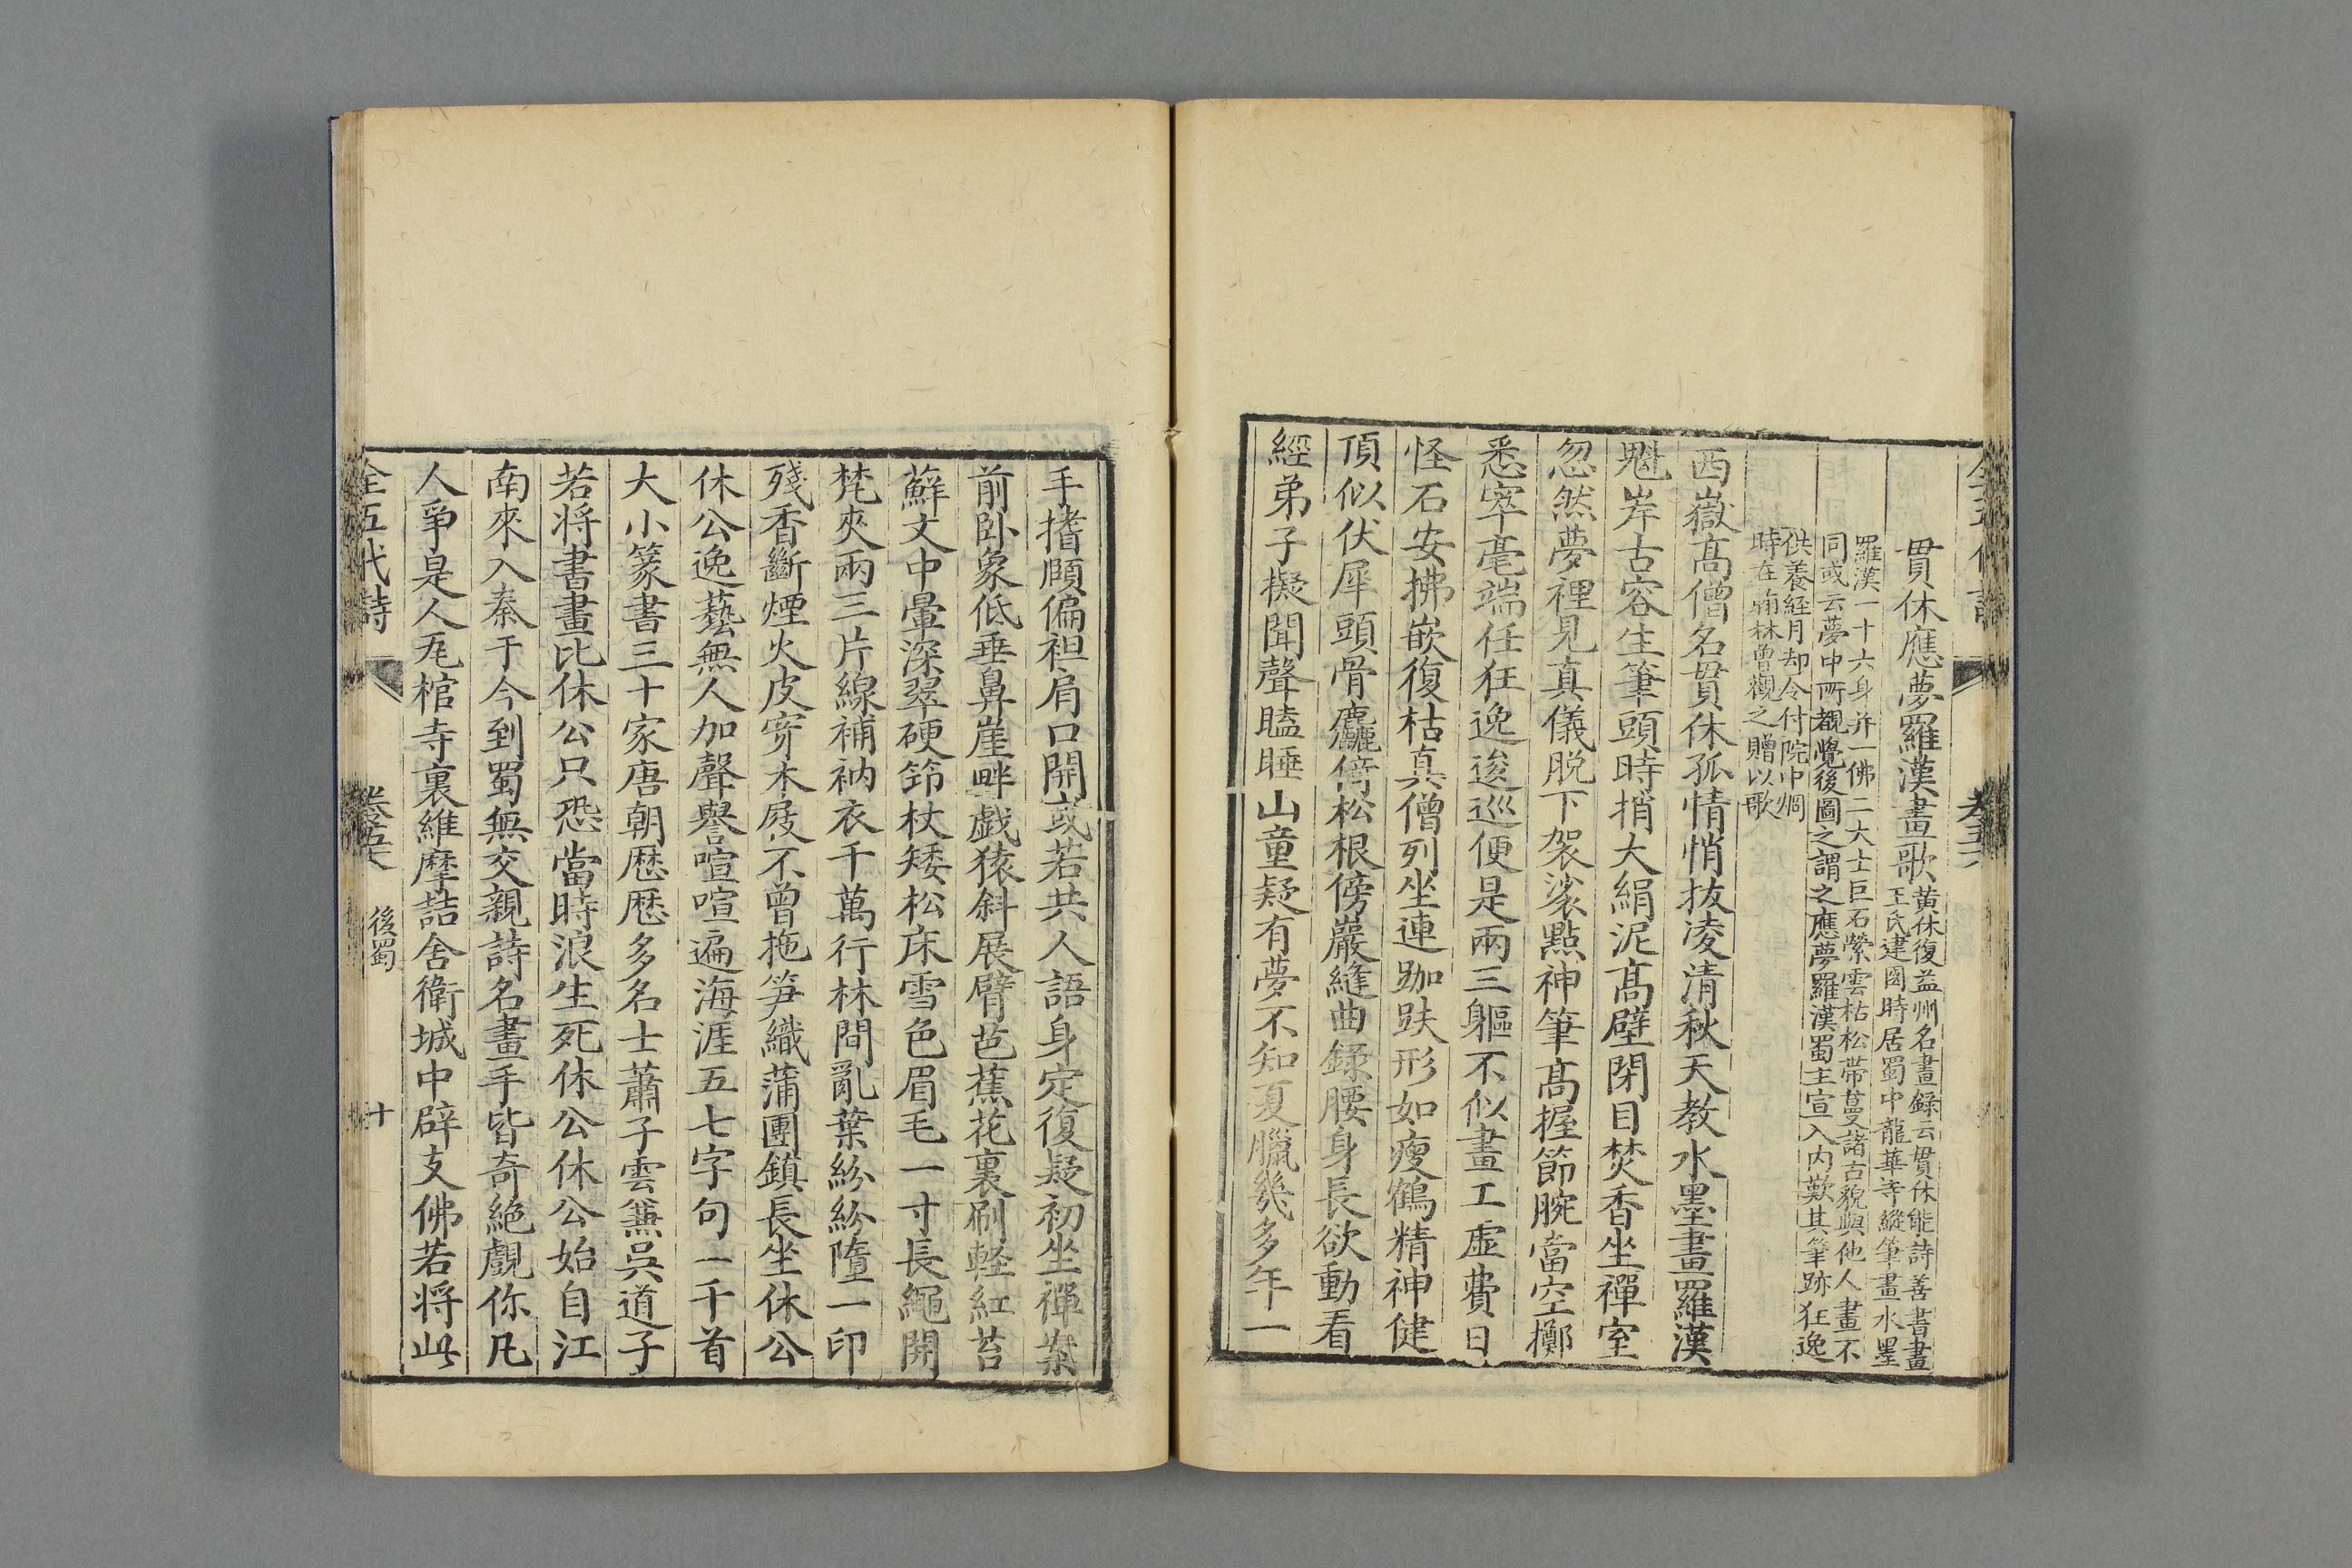 貫休應夢羅漢畫歌
黄休復益州名畫録云貫休能詩善書畫
王氏建國時居蜀中龍華寺縱筆畫水墨
羅漢一十六身并一佛二大士巨石縈雲枯松帶蔓諸古貌與他人畫不
同或云夢中所覩覺後圖之謂之應夢羅漢蜀主宣入内歎其筆跡狂逸
供養経月却令付院中烱
時在翰林曾觀之贈以歌
西嶽髙僧名貫休孤情悄拔凌清秋天教水墨畫羅漢
魁岸古容生筆頭時捎大絹泥髙壁閉目焚香坐禪室
忽然夢裡見真儀脱下袈裟點神筆髙握節腕當空擲
悉窣毫端任狂逸逡巡便是兩三軀不似畫工虛費日
怪石安拂嵌復枯真僧列坐連跏趺形如瘦鶴精神健
頂似伏犀頭骨麤倚松根傍巖縫曲録腰身長欲動看
經弟子擬聞聲瞌睡山童疑有夢不知夏臘幾多年一
手搘頤偏袒肩口開或若共人語身定復疑初坐禪案
前卧象低垂鼻崖畔戯猿斜展臂芭蕉花裏刷軽紅苔
蘚文中暈深翠硬筇杖矮松床雪色眉毛一寸長繩開
梵夾兩三片線補衲衣千萬行林間亂葉紛紛墮一印
殘香斷煙火皮穿木屐不曾拖笋織蒲團鎮長坐休公
休公逸藝無人加聲譽喧喧遍海涯五七字句一千首
大小篆書三十家唐朝歴歴多名士蕭子雲兼吳道子
若将書畫比休公只恐當時浪生死休公休公始自江
南來入秦于今到蜀無交親詩名畫手皆奇絶覰你凡
人爭是人瓦棺寺裏維摩詰舍衛城中辟支佛若将此
全五代詩
後蜀
十